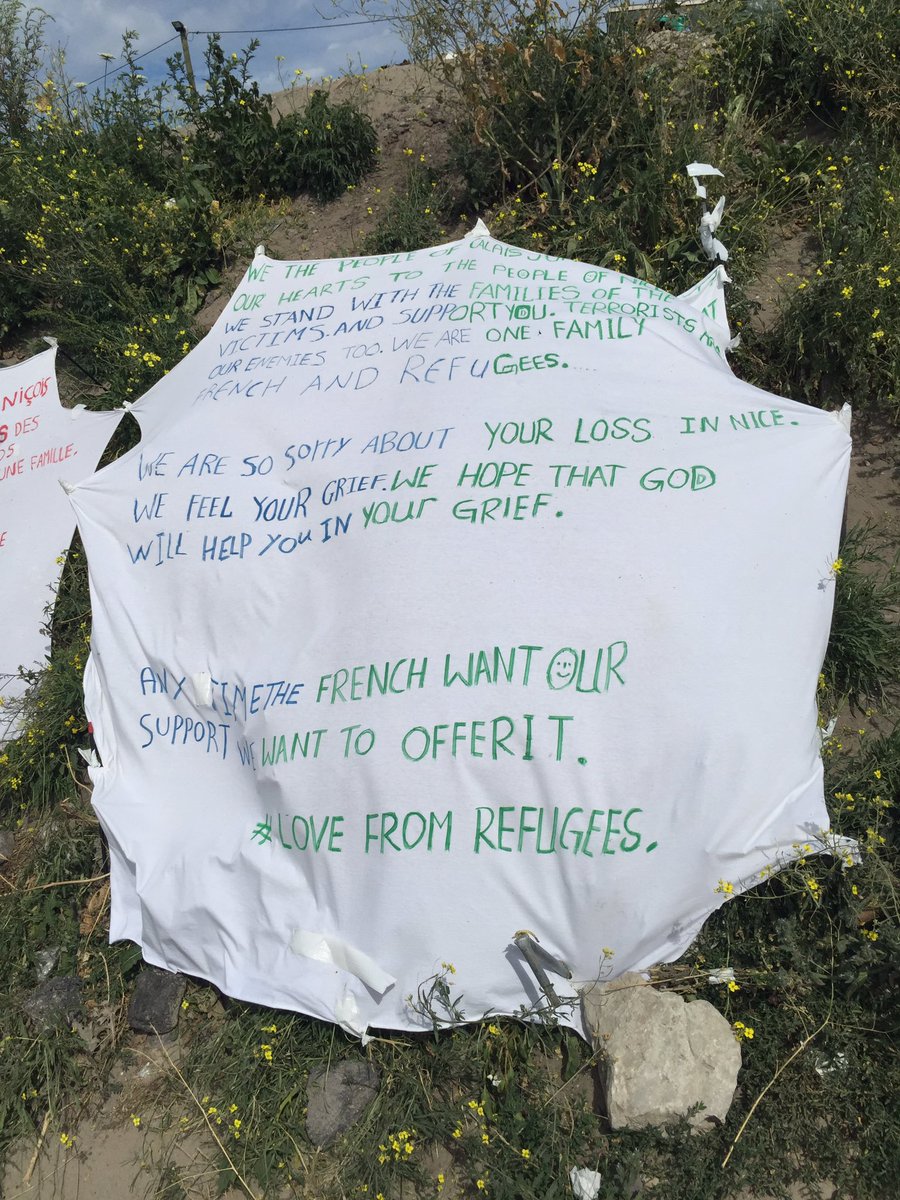 NIÇOIS
DES
UNE FAMILLE.
WE THE PEOPLE OF CALAIS
OUR HEARTS TO THE PEOPLE OF
WE STAND WITH THE FAMILIES OF THE
VICTIMS. AND SUPPORT YOU. TERRORISTS
OUR ENEMIES TOO. WE ARE ONE. FAMILY
FRENCH AND REFUGEES....
WE ARE SO SORRY ABOUT YOUR LOSS IN NICE.
WE FEEL YOUR GRIEF. WE HOPE THAT GOD
WILL HELP YOU IN YOUR GRIEF.
ANY TIME THE FRENCH WANT OUR
SUPPORT WE WANT TO OFFER IT.
#LOVE FROM REFUGEES.